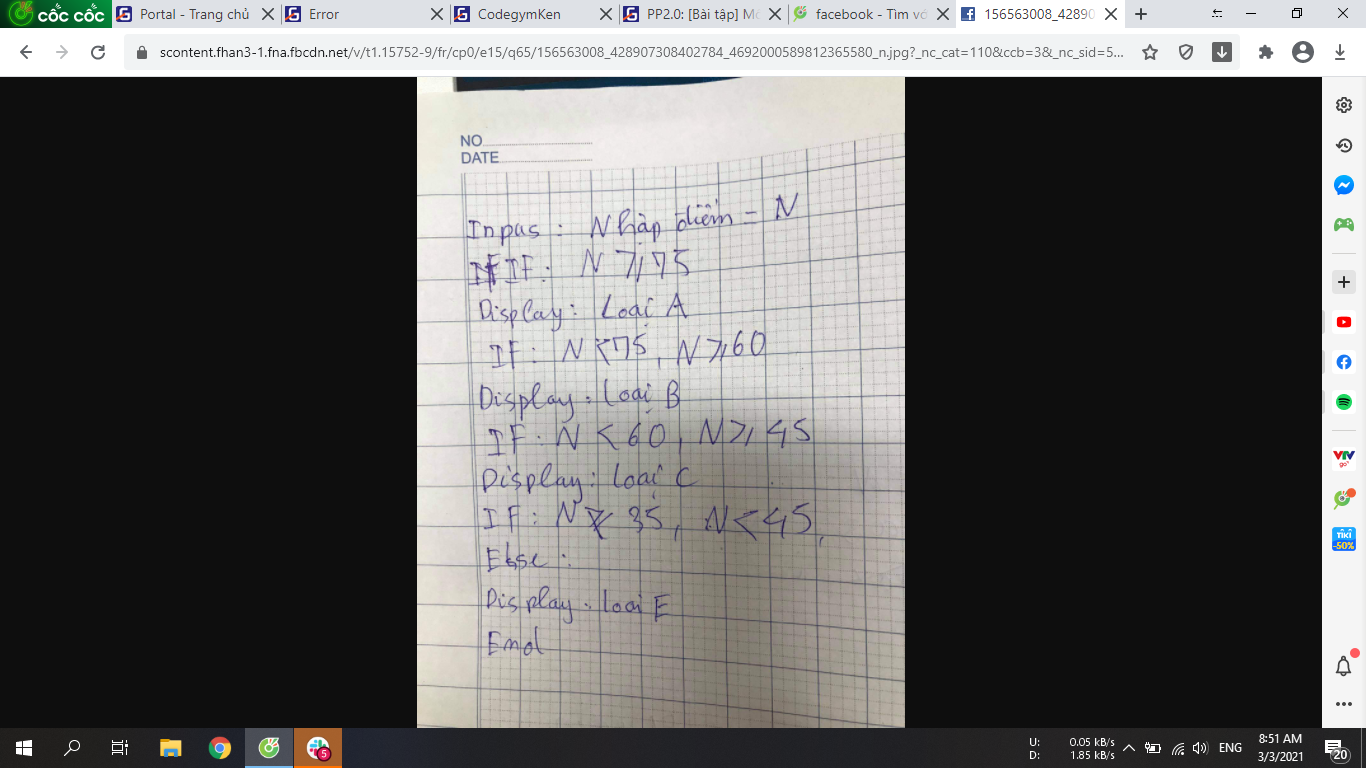 cốc cốc
Portal - Trang chủ
Error
CodegymKen
PP2.0: [Bài tập] Mô
facebook - Tìm vớ
156563008_42890
scontent.fhan3-1.fna.fbcdn.net/v/t1.15752-9/fr/cp0/e15/q65/156563008_428907308402784_4692000589812365580_n.jpg?_nc_cat=110&ccb=3&_nc_sid=5...
NO
DATE
Inpus : Nhập điểm = N
IF : N ⩾ 75
Display : Loại A
IF : N < 75, N ⩾ 60
Display : Loại B
IF : N < 60, N ⩾ 45
Display : Loại C
IF : N 35, N < 45,
Else :
Display : loại E
End
VTV
go
TIKI
-50%
U: 0.05 kB/s
D: 1.85 kB/s
ENG
8:51 AM
3/3/2021
20
5